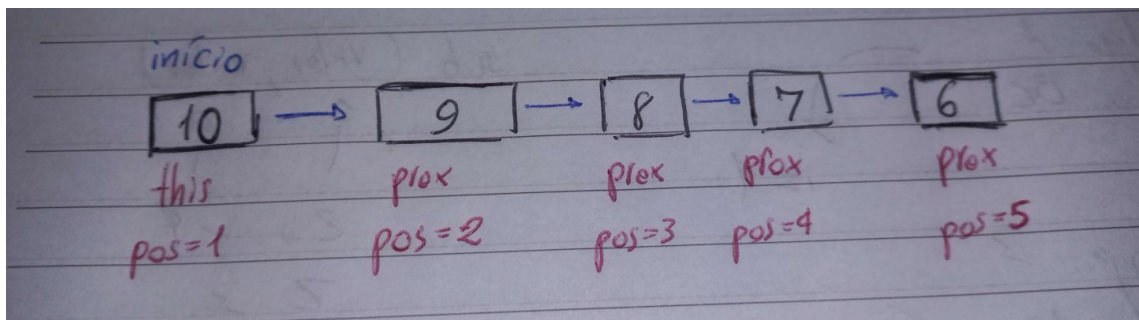 início
10 → 9 → 8 → 7 → 6
this prox prox prox prox
pos=1 pos=2 pos=3 pos=4 pos=5